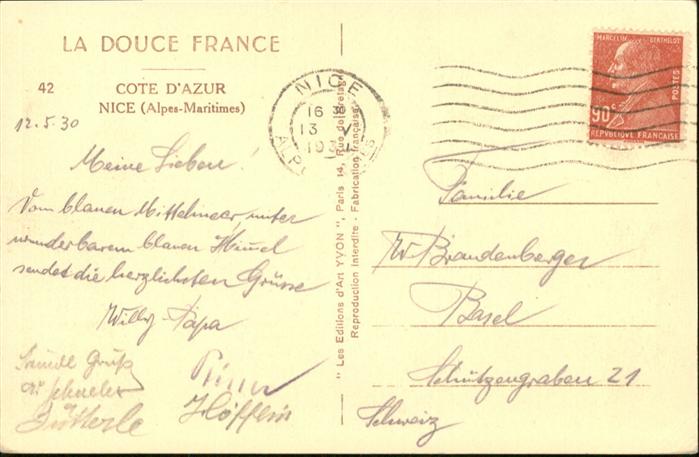 LA DOUCE FRANCE
42 COTE D'AZUR
NICE (Alpes-Maritimes)
12.5.30
Meine Lieben!
Vom blauen Mittelmeer unter
wunderbarem blauen Himmel
sendet die herzlichsten Grüsse
Willy-Papa
Gruß
Höfflin
" Les Editions d'Art YVON ", Paris 14, Rue de Bretagne
Reproduction Interdite - Fabrication française
NICE
16 30
13 V
1930
MARCELIN BERTHELOT
POSTES
90c
REPVBLIQVE FRANÇAISE
Familie
W. Brandenberger
Basel
Schützengraben 21
Schweiz